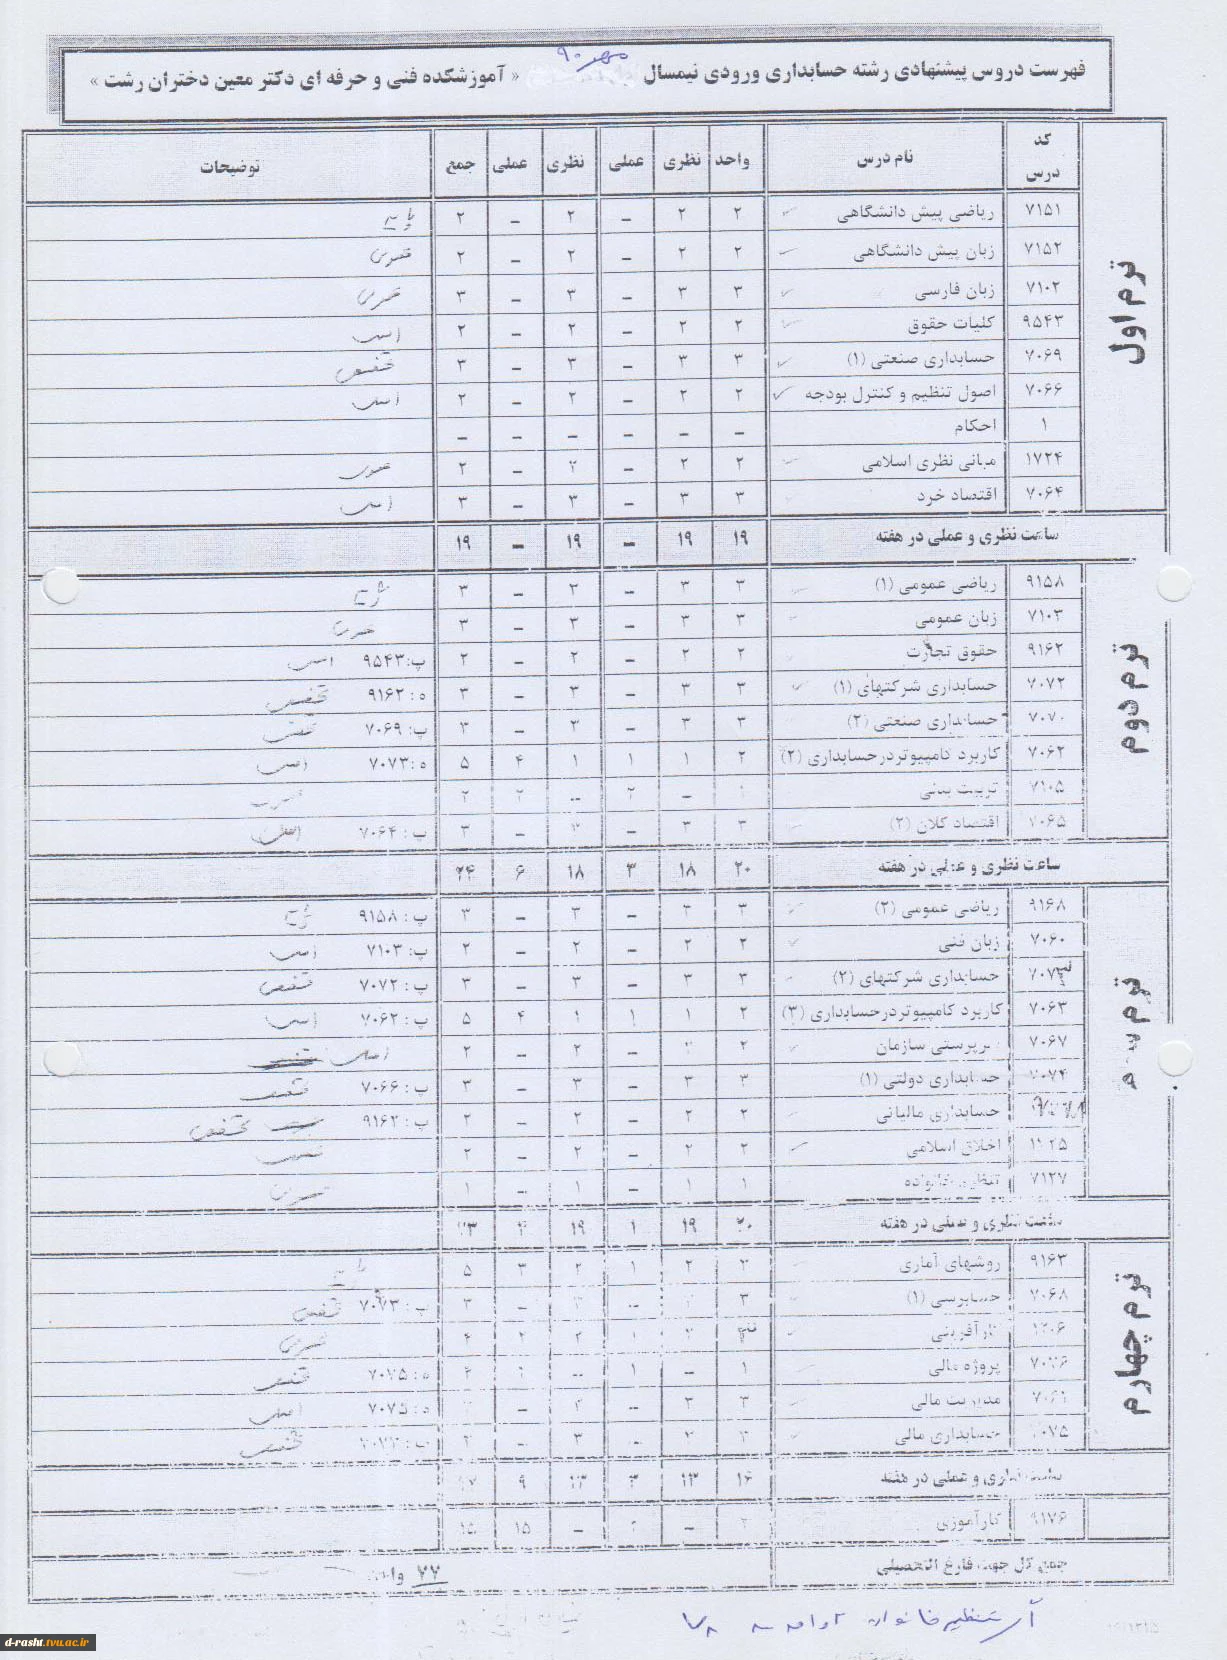 فهرست دروس پیشنهادی رشته حسابداری ورودی نیمسال مهر ۹۰ « آموزشکده فنی و حرفه ای دکتر معین دختران رشت »
کد درس نام درس واحد نظری عملی نظری عملی جمع توضیحات
ترم اول
۷۱۵۱ ریاضی پیش دانشگاهی ۲ ۲ – ۲ – ۲ پایه
۷۱۵۲ زبان پیش دانشگاهی ۲ ۲ – ۲ – ۲ عمومی
۷۱۰۲ زبان فارسی ۳ ۳ – ۳ – ۳ عمومی
۹۵۴۳ کلیات حقوق ۲ ۲ – ۲ – ۲ اصلی
۷۰۶۹ حسابداری صنعتی (۱) ۳ ۳ – ۳ – ۳ تخصصی
۷۰۶۶ اصول تنظیم و کنترل بودجه ۲ ۲ – ۲ – ۲ اصلی
۱ احکام – – – – – –
۱۷۲۴ مبانی نظری اسلامی ۲ ۲ – ۲ – ۲ عمومی
۷۰۶۴ اقتصاد خرد ۳ ۳ – ۳ – ۳ اصلی
ساعت نظری و عملی در هفته ۱۹ ۱۹ – ۱۹ – ۱۹
ترم دوم
۹۱۵۸ ریاضی عمومی (۱) ۳ ۳ – ۳ – ۳ پایه
۷۱۰۳ زبان عمومی ۳ ۳ – ۳ – ۳ عمومی
۹۱۶۲ حقوق تجارت ۲ ۲ – ۲ – ۲ پ: ۹۵۴۳ اصلی
۷۰۷۲ حسابداری شرکتهای (۱) ۳ ۳ – ۳ – ۳ ه: ۹۱۶۲ تخصصی
۷۰۷۰ حسابداری صنعتی (۲) ۳ ۳ – ۳ – ۳ پ: ۷۰۶۹ تخصصی
۷۰۶۲ کاربرد کامپیوتردرحسابداری (۲) ۲ ۱ ۱ ۱ ۴ ۵ ه: ۷۰۷۳ اصلی
۷۱۰۵ تربیت بدنی ۱ – ۲ – ۲ ۲ عمومی
۷۰۶۵ اقتصاد کلان (۲) ۳ ۳ – ۳ – ۳ پ: ۷۰۶۴ اصلی
ساعت نظری و عملی در هفته ۲۰ ۱۸ ۳ ۱۸ ۶ ۲۴
ترم سوم
۹۱۶۸ ریاضی عمومی (۲) ۳ ۳ – ۳ – ۳ پ: ۹۱۵۸ پایه
۷۰۶۰ زبان فنی ۲ ۲ – ۲ – ۲ پ: ۷۱۰۳ اصلی
۷۰۷۳ حسابداری شرکتهای (۲) ۳ ۳ – ۳ – ۳ پ: ۷۰۷۲ تخصصی
۷۰۶۳ کاربرد کامپیوتردرحسابداری (۳) ۲ ۱ ۱ ۱ ۴ ۵ پ: ۷۰۶۲ اصلی
۷۰۶۷ سرپرستی سازمان ۲ ۲ – ۲ – ۲ اصلی
۷۰۷۴ حسابداری دولتی (۱) ۳ ۳ – ۳ – ۳ پ: ۷۰۶۶ تخصصی
حسابداری مالیاتی ۲ ۲ – ۲ – ۲ پ: ۹۱۶۲ تخصصی
۱۱۲۵ اخلاق اسلامی ۲ ۲ – ۲ – ۲ عمومی
۷۱۲۷ تنظیم خانواده ۱ ۱ – ۱ – ۱ عمومی
ساعت نظری و عملی در هفته ۲۰ ۱۹ ۱ ۱۹ ۴ ۲۳
ترم چهارم
۹۱۶۳ روشهای آماری ۲ ۱ ۲ ۳ ۵ پایه
۷۰۶۸ حسابرسی (۱) ۳ – – ۳ پ: ۷۰۷۳ تخصصی
کارآفرینی ۲ ۱ ۲ ۲ ۴ عمومی
پروژه مالی ۱ – ۱ – ۲ ه: ۷۰۷۵ تخصصی
مدیریت مالی ۳ ۳ – ۳ – ه: ۷۰۷۵ اصلی
۷۰۷۵ حسابداری مالی ۳ ۳ – ۳ – ۳ تخصصی
ساعت نظری و عملی در هفته ۱۶ ۱۳ ۳ ۱۳ ۹
کارآموزی ۲ – ۲ – ۱۵ ۱۵
جمع کل جهت فارغ التحصیلی ۷۷ واحد
d-rasht.tvu.ac.ir